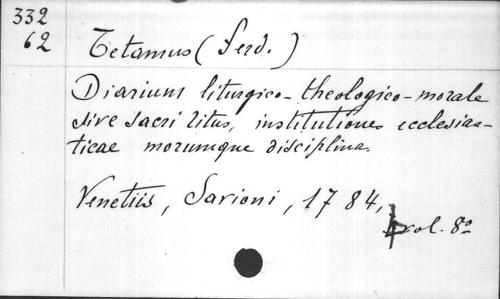 332
62
Tetamus (Ferd.)
Diarium liturgico-theologico-morale
sive sacri ritus, institutiones ecclesias-
ticae morumque disciplina.
Venetiis, Savioni, 1784,
vol. 8º